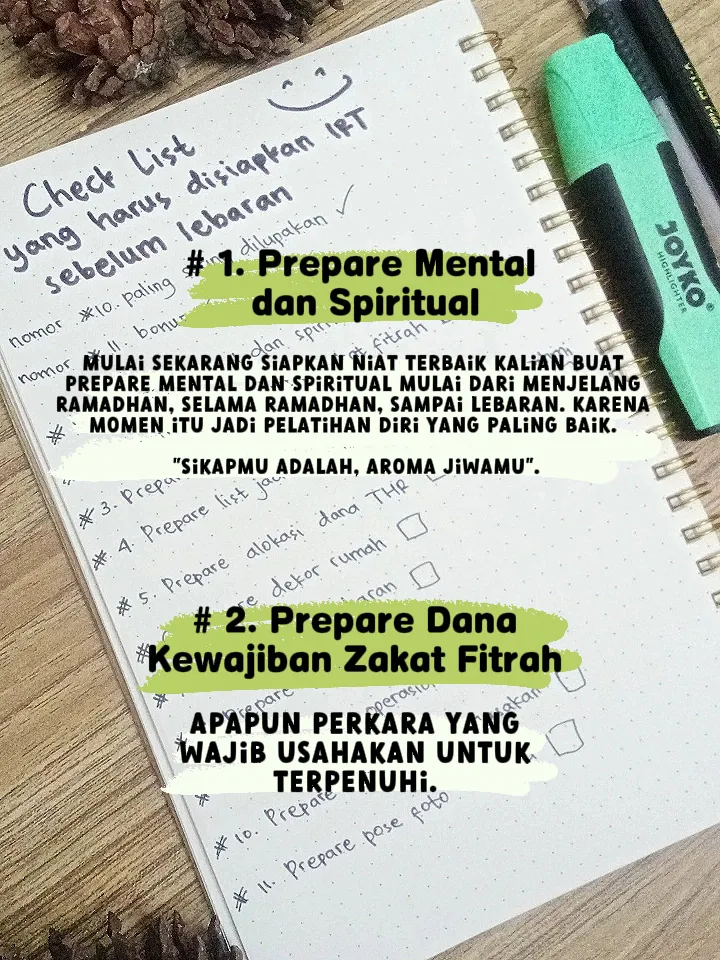 Check List
yang harus disiapkan IRT
sebelum lebaran
nomor #10. paling dilupakan ✓
nomor #11. bonus
# 1. Prepare Mental
dan Spiritual
dan fitrah
MULAi SEKARANG SiAPKAN NiAT TERBAiK KALiAN BUAT
PREPARE MENTAL DAN SPiRiTUAL MULAi DARi MENJELANG
RAMADHAN, SELAMA RAMADHAN, SAMPAi LEBARAN. KARENA
MOMEN iTU JADi PELATiHAN DiRi YANG PALiNG BAiK.
"SiKAPMU ADALAH, AROMA JiWAMU".
# 3.
# 4. Prepare list
# 5. Prepare alokasi dana THR
dekor rumah
# 2. Prepare Dana
Kewajiban Zakat Fitrah
APAPUN PERKARA YANG
WAJiB USAHAKAN UNTUK
TERPENUHi.
# 10. Prepare
# 11. Prepare pose foto
JOYKO
HIGHLIGHTER